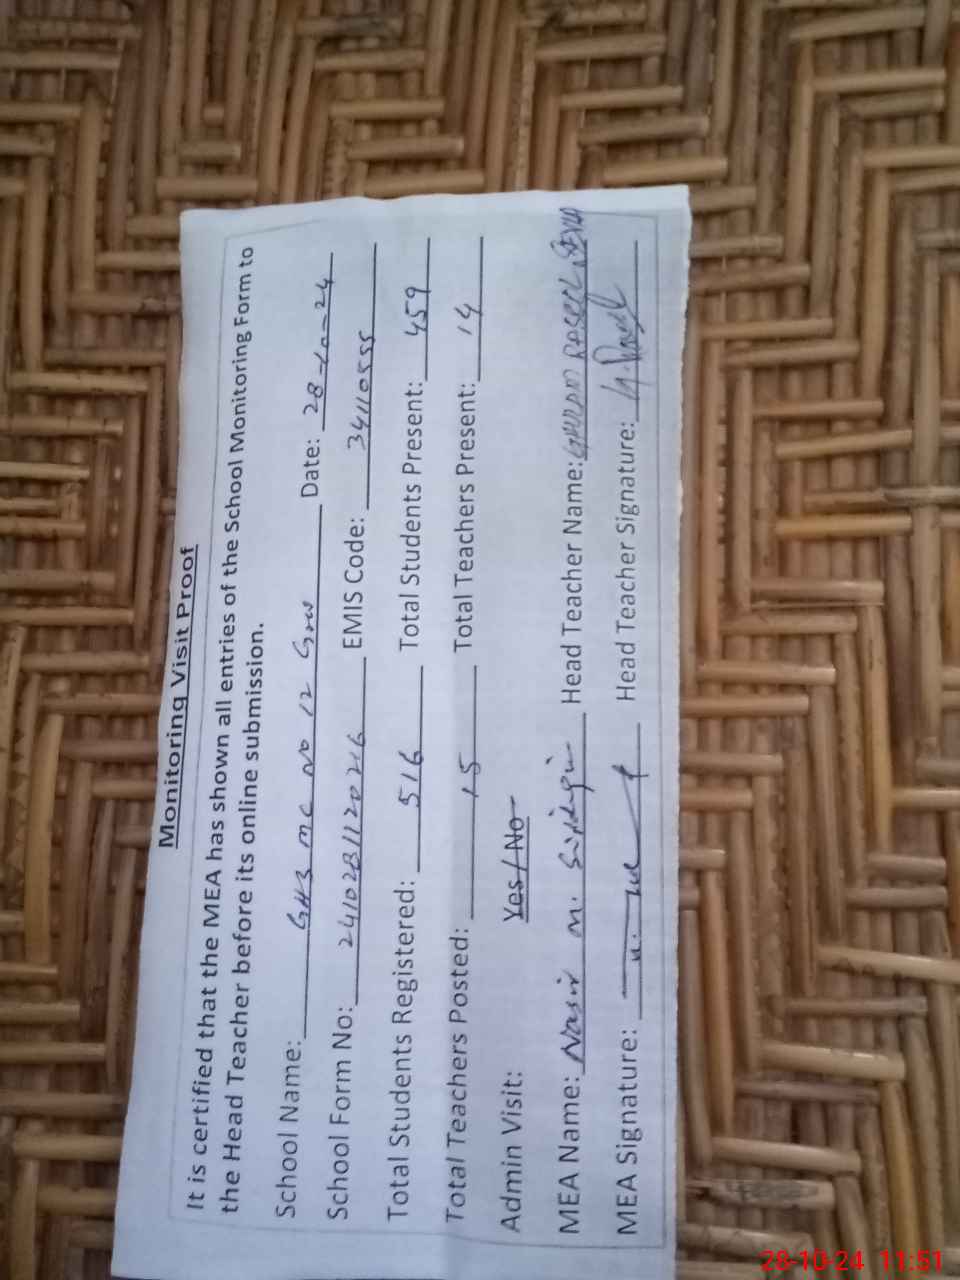 Monitoring Visit Proof
It is certified that the MEA has shown all entries of the School Monitoring Form to
the Head Teacher before its online submission.
School Name: GHS MC No 12 Date: 28-10-24
School Form No: EMIS Code: 34110555
Total Students Registered: 516 Total Students Present: 459
Total Teachers Posted: 15 Total Teachers Present: 14
Admin Visit: Yes/No
MEA Name: Nasir M. Head Teacher Name:
MEA Signature: Head Teacher Signature:
28-10-24 11:51